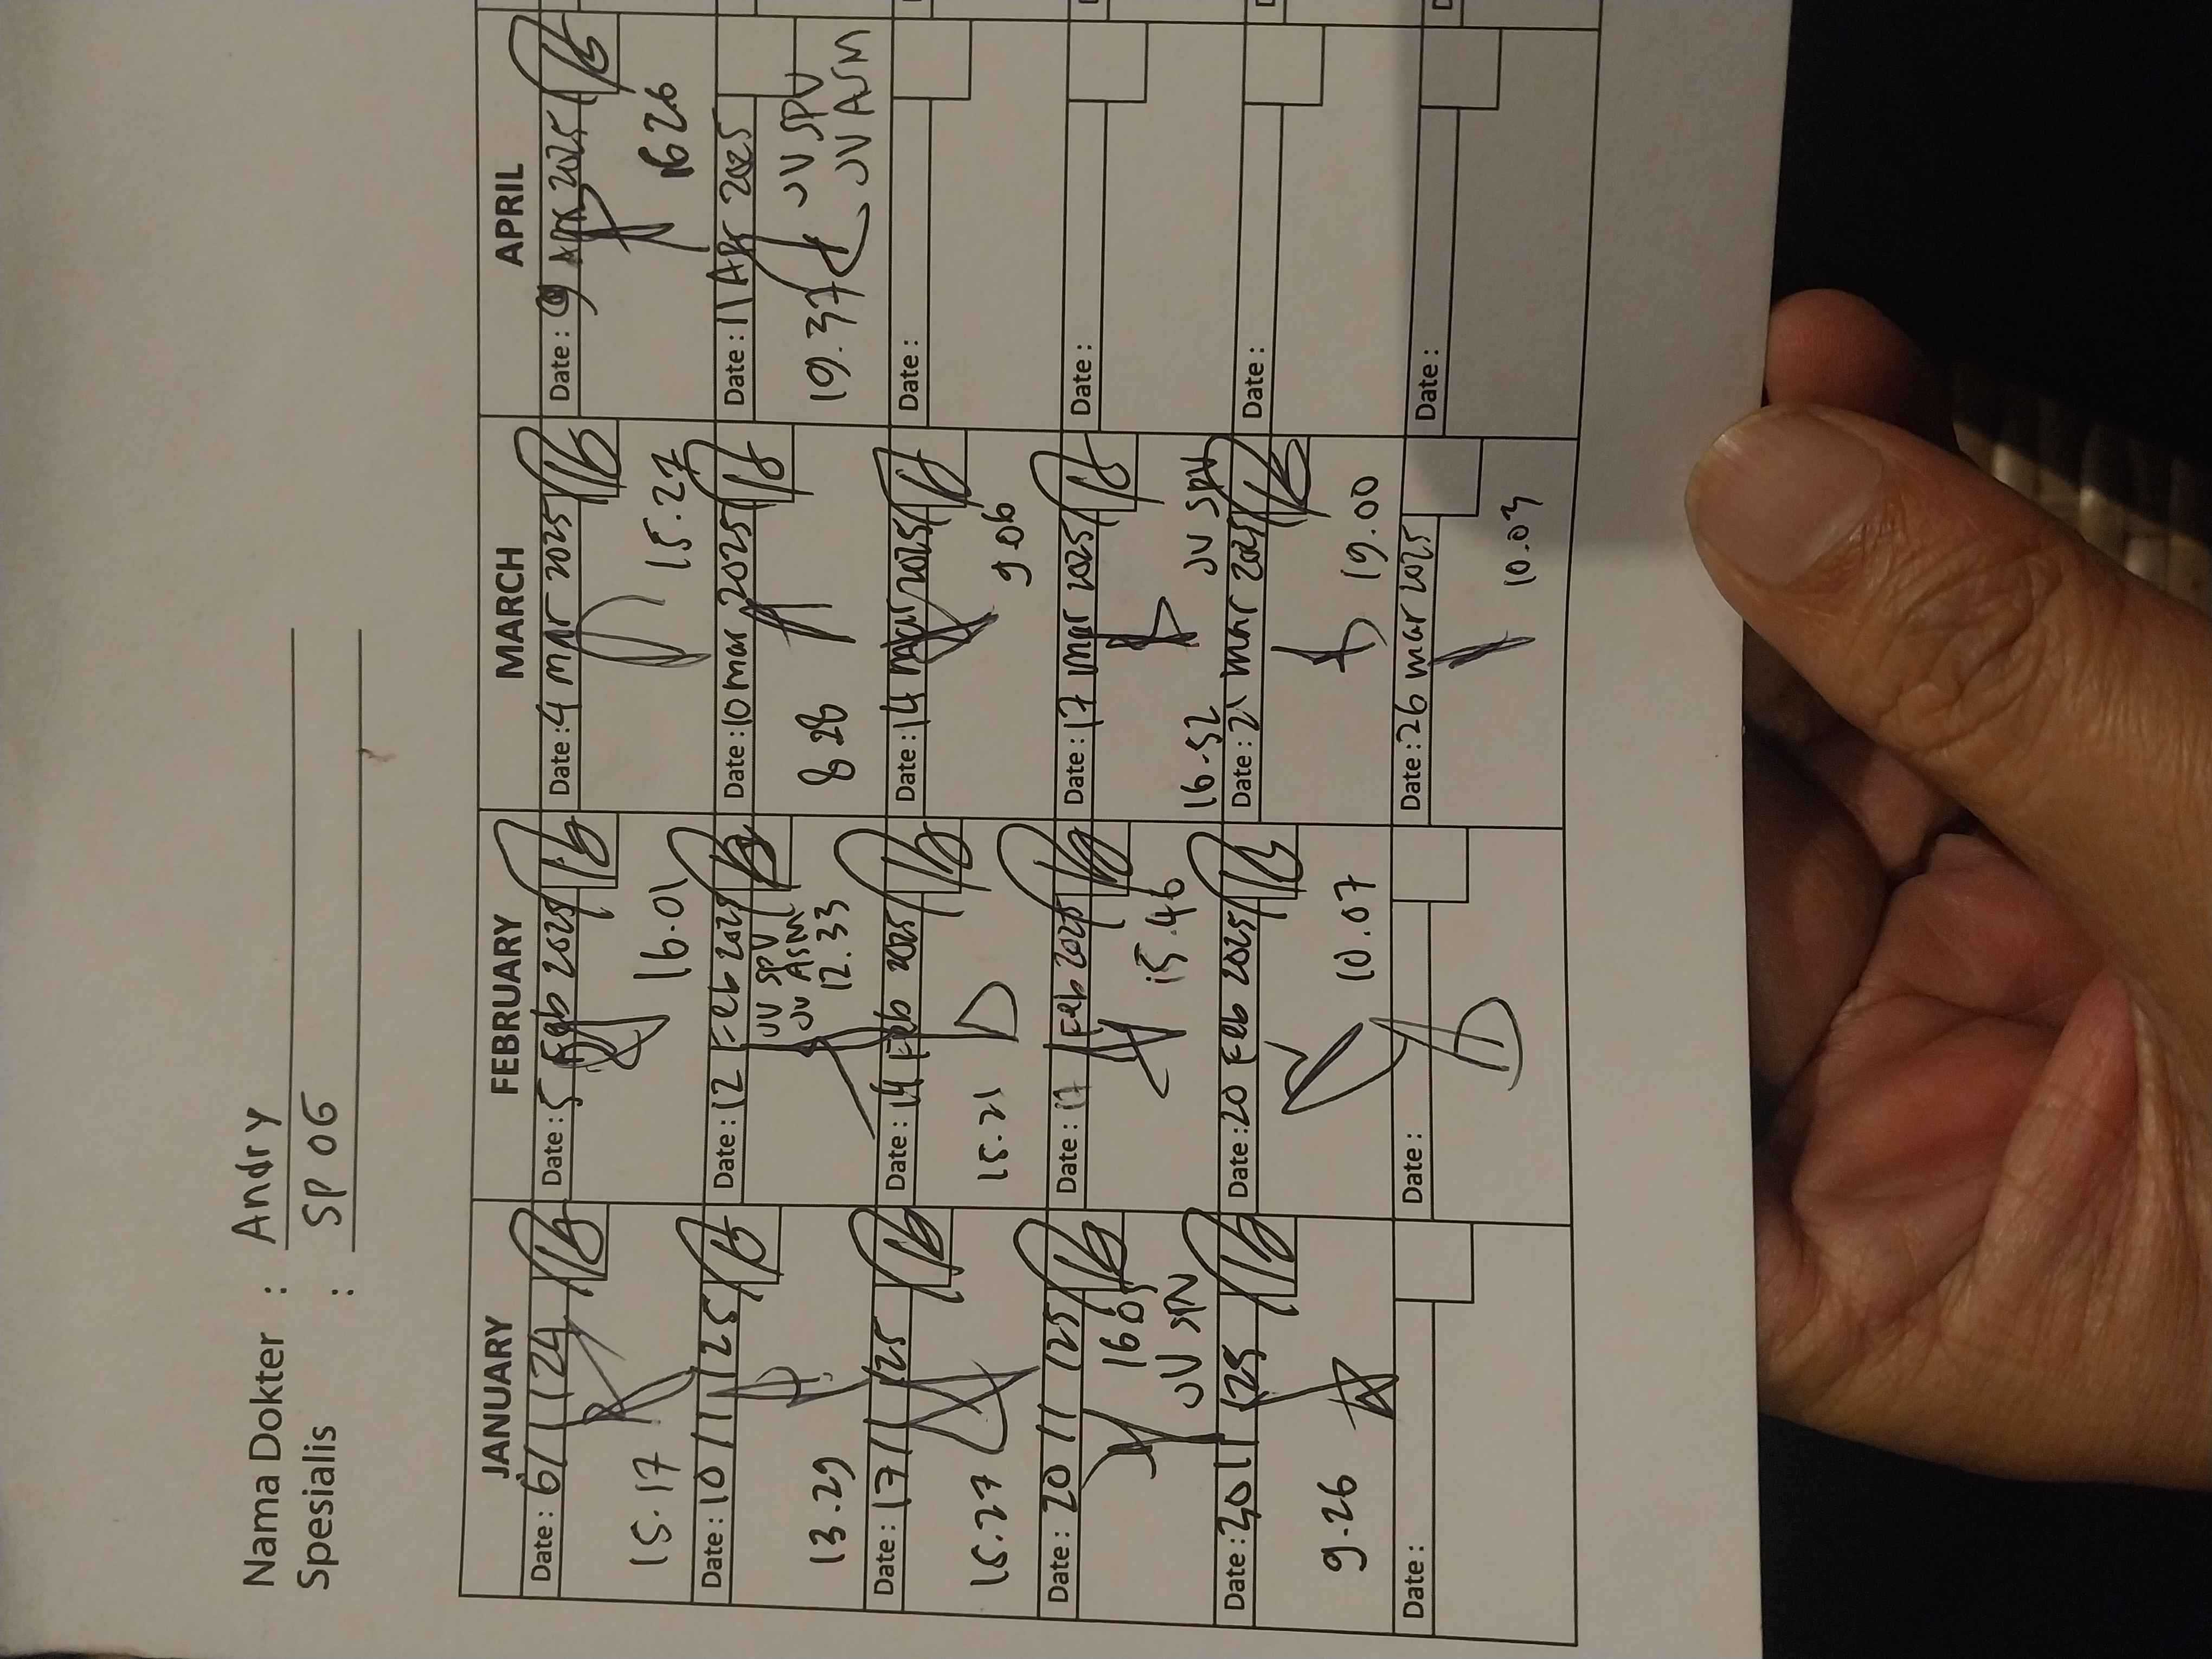 Nama Dokter : Andry
Spesialis : SP OG
JANUARY
Date : 6/1/24
15.17
Date : 10/1/25
13.29
Date : 17/1/25
15.27
Date : 20/1/25
1605
JV SPV
Date : 30/1/25
9.26
Date :
FEBRUARY
Date : 5 Feb 2025
16.01
Date : 12 Feb 2025
JV SPV
JV ASM
12.33
Date : 14 Feb 2025
15.21
Date : 17 Feb 2025
15.46
Date : 20 Feb 2025
10.07
Date :
MARCH
Date : 4 mar 2025
15.27
Date : 10 mar 2025
8.26
Date : 14 mar 2025
9.06
Date : 17 mar 2025
16.52 JV SPV
Date : 21 mar 2025
19.00
Date : 26 mar 2025
10.03
APRIL
Date : 9 Apr 2025
1626
Date : 11 Apr 2025
19.37 JV SPV
JV ASM
Date :
Date :
Date :
Date :